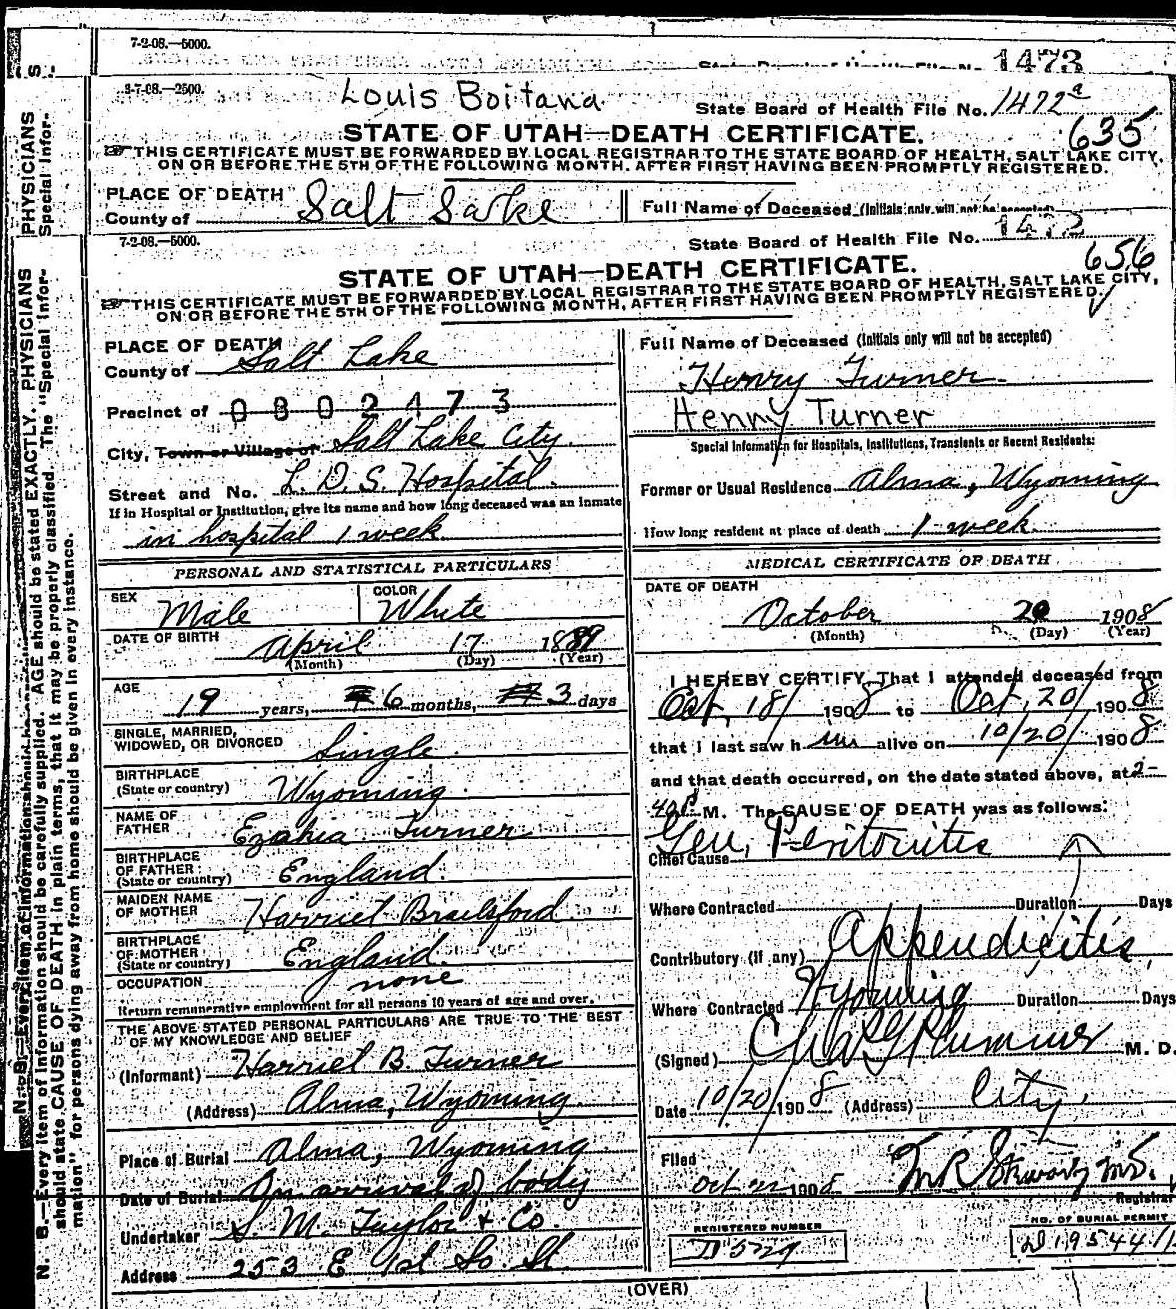 7-2-08.—5000.
1473
8-7-08.—2500.
Louis Boitana
State Board of Health File No. 1472a
STATE OF UTAH—DEATH CERTIFICATE.
635
THIS CERTIFICATE MUST BE FORWARDED BY LOCAL REGISTRAR TO THE STATE BOARD OF HEALTH, SALT LAKE CITY,
ON OR BEFORE THE 5TH OF THE FOLLOWING MONTH, AFTER FIRST HAVING BEEN PROMPTLY REGISTERED.
PLACE OF DEATH
County of Salt Lake
Full Name of Deceased (Initials only will not be accepted)
7-2-08.—5000.
State Board of Health File No. 1473
STATE OF UTAH—DEATH CERTIFICATE.
656
THIS CERTIFICATE MUST BE FORWARDED BY LOCAL REGISTRAR TO THE STATE BOARD OF HEALTH, SALT LAKE CITY,
ON OR BEFORE THE 5TH OF THE FOLLOWING MONTH, AFTER FIRST HAVING BEEN PROMPTLY REGISTERED.
PLACE OF DEATH
County of Salt Lake
Precinct of 0802473
City, Town or Village of Salt Lake City
Street and No. L. D. S. Hospital.
If in Hospital or Institution, give its name and how long deceased was an inmate
in hospital 1 week
Full Name of Deceased (Initials only will not be accepted)
Henry Turner
Henny Turner
Special Information for Hospitals, Institutions, Transients or Recent Residents:
Former or Usual Residence Alma, Wyoming
How long resident at place of death 1 week
PERSONAL AND STATISTICAL PARTICULARS
SEX Male
COLOR White
DATE OF BIRTH April 17 1889
(Month) (Day) (Year)
AGE 19 years, 6 months, 3 days
SINGLE, MARRIED,
WIDOWED, OR DIVORCED Single
BIRTHPLACE
(State or country) Wyoming
NAME OF
FATHER Ezahia Turner
BIRTHPLACE
OF FATHER
(State or country) England
MAIDEN NAME
OF MOTHER Harriet Brailsford
BIRTHPLACE
OF MOTHER
(State or country) England
OCCUPATION none
Return remunerative employment for all persons 10 years of age and over.
THE ABOVE STATED PERSONAL PARTICULARS ARE TRUE TO THE BEST
OF MY KNOWLEDGE AND BELIEF
(Informant) Harriet B. Turner
(Address) Alma, Wyoming
Place of Burial Alma, Wyoming
Date of Burial On arrival of body
Undertaker S. M. Taylor & Co.
Address 253 E 1st So. St.
MEDICAL CERTIFICATE OF DEATH
DATE OF DEATH
October 20 1908
(Month) (Day) (Year)
I HEREBY CERTIFY, That I attended deceased from
Oct, 18/ 1908 to Oct, 20/ 1908
that I last saw h im alive on 10/20/ 1908
and that death occurred, on the date stated above, at 2-
40 P M. The CAUSE OF DEATH was as follows:
Chief Cause Gen, Peritonitis
Where Contracted Duration Days
Contributory (if any) Appendicitis
Where Contracted Wyoming Duration Days
(Signed) Chas G Plummer M. D.
Date 10/20/1908 (Address) City,
Filed
Oct 21 1908
Registrar
REGISTERED NUMBER
D 529
NO. OF BURIAL PERMIT
(OVER)
PHYSICIANS
Special Infor-
N. B.—Every item of information should be carefully supplied. AGE should be stated EXACTLY. PHYSICIANS
should state CAUSE OF DEATH in plain terms, that it may be properly classified. The "Special Infor-
mation" for persons dying away from home should be given in every instance.